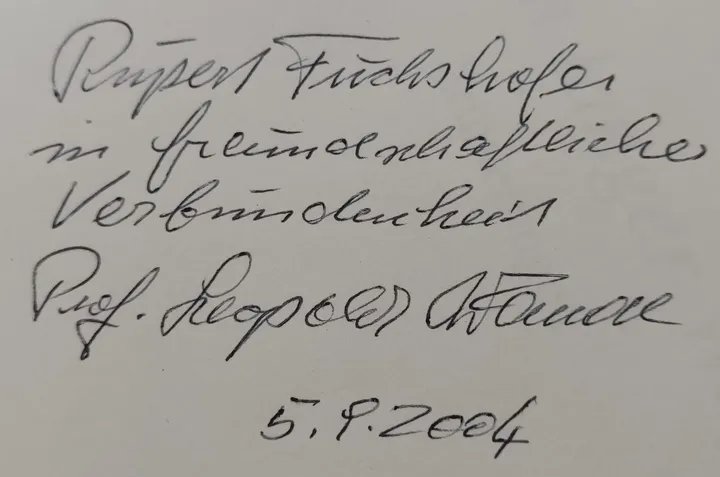 Rupert Fuchshofer
in freundschaftlicher
Verbundenheit
Prof. Leopold
5.9.2004